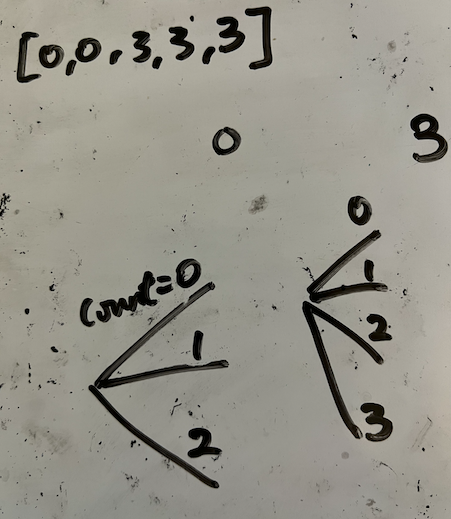 [0,0,3,3,3]
0 3
count=0
1
2
0
1
2
3